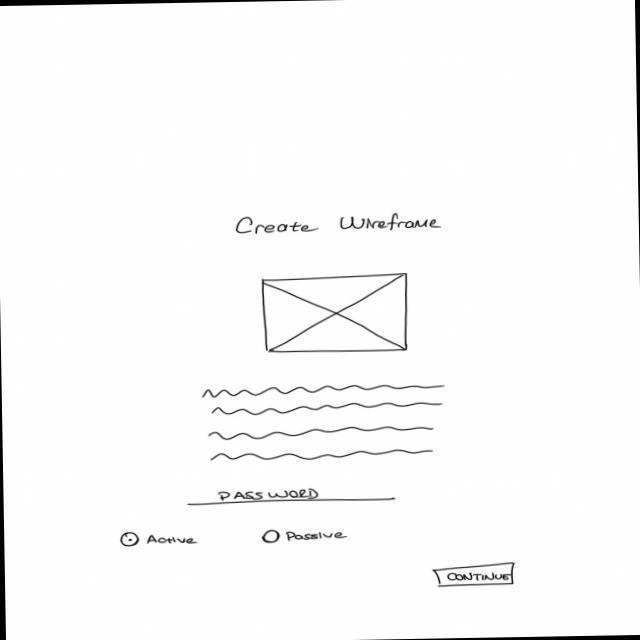 Create Wireframe
PASSWORD
Active
Passive
CONTINUE